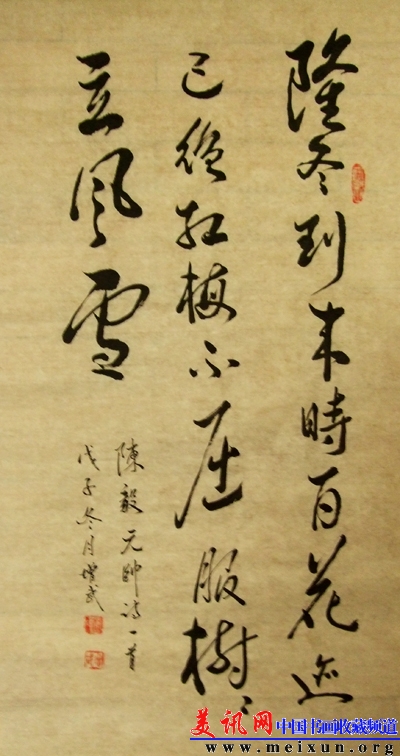 隆冬到来時百花迹
已絶红梅不屈服樹々
立風雪
陳毅元帅诗一首
戊子冬月增武
美讯网 中国书画收藏频道
www.meixun.org